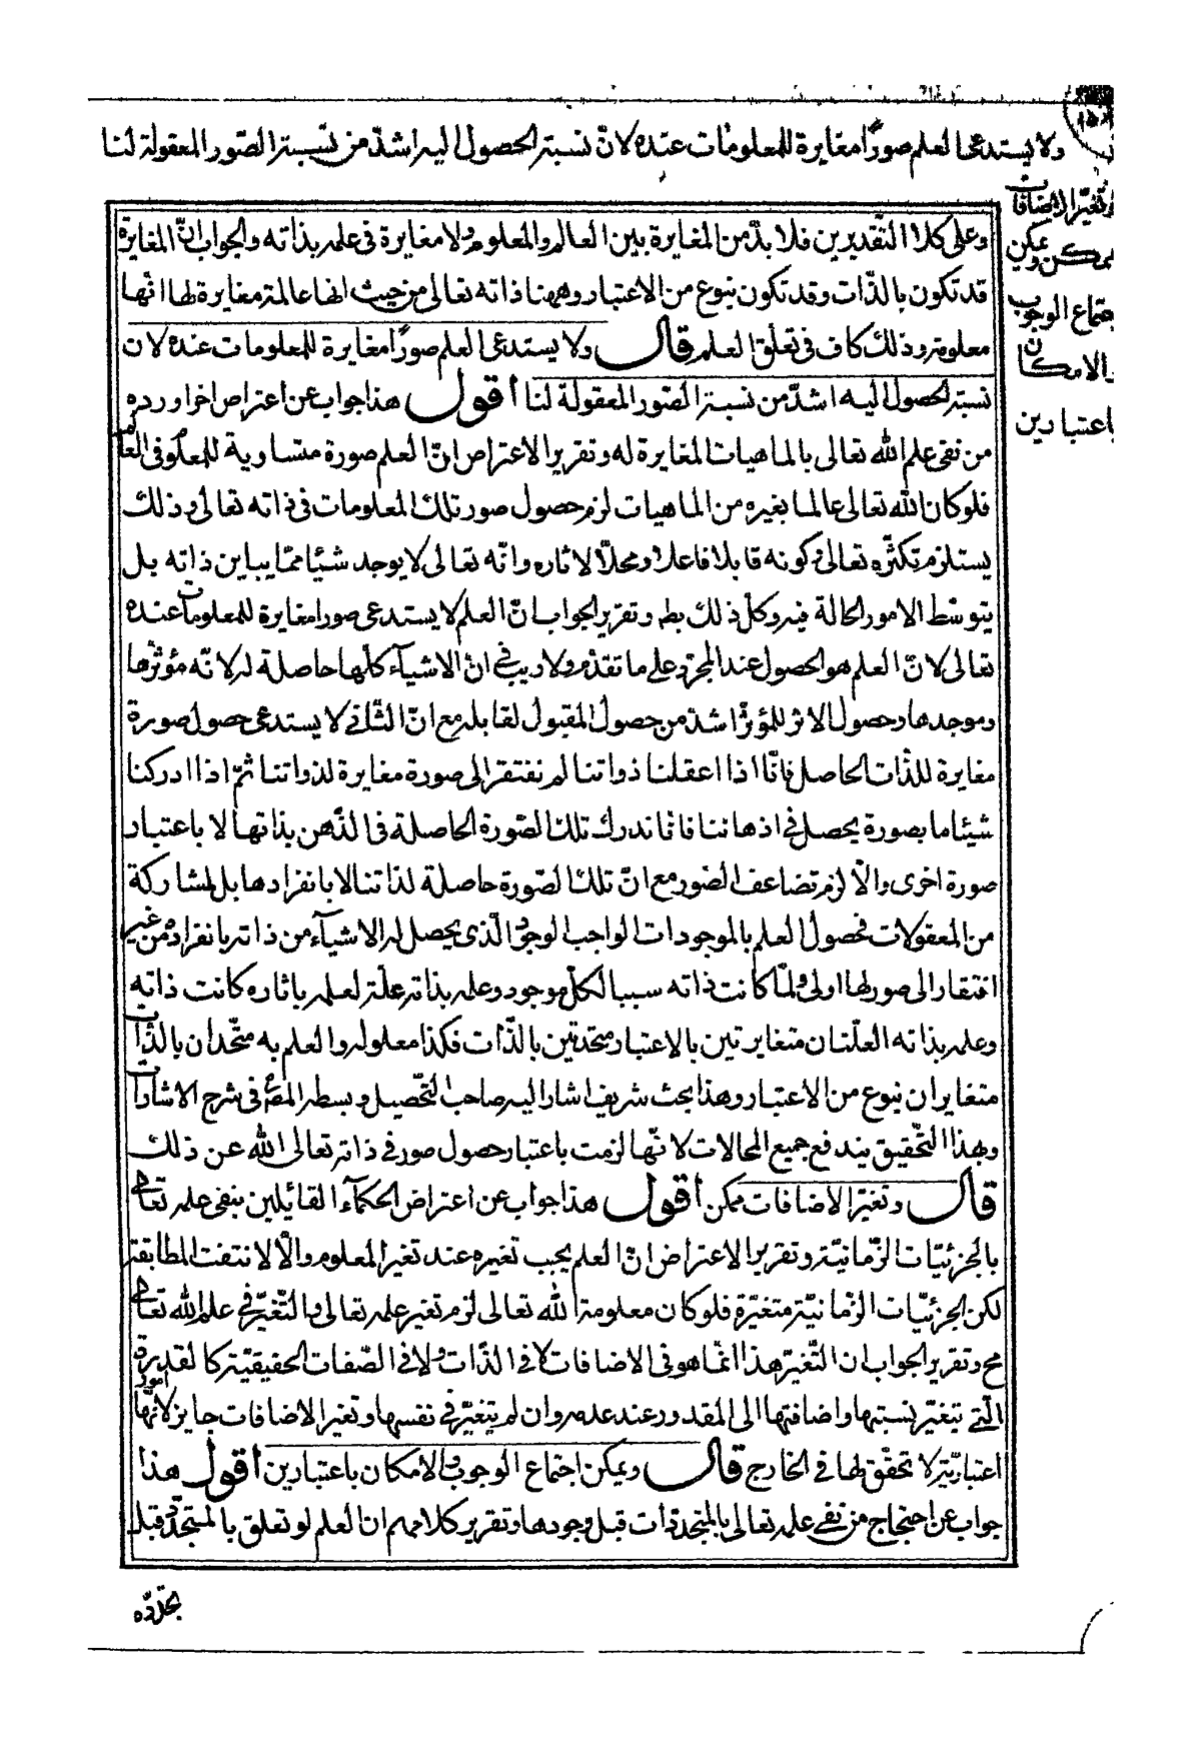 ولا يستدعى العلم صورًا مغايرة للمعلومات عنده لانّ نسبة الحصول اليه اشدّ من نسبة الصّور المعقولة لنا
وتغيّر الاضافات
ممكن ويمكن
اجتماع الوجوب
والامكان
باعتبارين
وعلى كلا التّقديرين فلا بدّ من المغايرة بين العالم والمعلوم ولا مغايرة فى علمه بذاته والجواب انّ المغايرة
قد تكون بالذّات وقد تكون بنوع من الاعتبار وههنا ذاته تعالى من حيث انها عالمة مغايرة لها انّها
معلومة وذلك كاف فى تعلّق العلم قال ولا يستدعى العلم صورًا مغايرة للمعلومات عنده لان
نسبة الحصول اليه اشدّ من نسبة الصّور المعقولة لنا اقول هذا جواب عن اعتراض اخر اورده
من نفى علم الله تعالى بالماهيات المغايرة له وتقرير الاعتراض انّ العلم صورة متساوية للمعلوم فى العالم
فلو كان الله تعالى عالما بغيره من الماهيات لزم حصول صور تلك المعلومات فى ذاته تعالى وذلك
يستلزم تكثّره تعالى وكونه قابلا فاعلا ومحلّا لاثاره وانّه تعالى لا يوجد شيئا ممّا يباين ذاته بل
بتوسّط الامور الحالة فيه وكلّ ذلك بط وتقرير الجواب انّ العلم لا يستدعى صورا مغايرة للمعلومات عنده
تعالى لانّ العلم هو الحصول عند المجرّد على ما تقدّم ولا ريب فى انّ الاشيآء كلّها حاصلة له لانّه مؤثّرها
وموجدها وحصول الاثر للمؤثّر اشدّ من حصول المقبول لقابله مع انّ الثّانى لا يستدعى حصول صورة
مغايرة للذّات الحاصل فانّا اذا اعقلنا ذواتنا لم نفتقر الى صورة مغايرة لذواتنا ثمّ اذا ادركنا
شيئا ما بصورة يحصل فى اذهاننا فانّا ندرك تلك الصّورة الحاصلة فى الذّهن بذاتها لا باعتبار
صورة اخرى والّا لزم تضاعف الصّور مع انّ تلك الصّورة حاصلة لذاتنا لا بانفرادها بل بمشاركة
من المعقولات فحصول العلم بالموجودات الواجب الوجود الّذى يحصل له الاشيآء من ذاته بانفراده من غير
افتقار الى صور لها اولى ولمّا كانت ذاته سببا لكلّ موجود وعلمه بذاته علّة لعلمه باثاره كانت ذاته
وعلمه بذاته العلّتان متغايرتين بالاعتبار متحدتين بالذّات فكذا معلوله والعلم به متّحدان بالذّات
متغايران بنوع من الاعتبار وهذا بحث شريف اشار اليه صاحب التّحصيل وبسطه المص فى شرح الاشارات
وبهذا التّحقيق يندفع جميع المحالات لانّها لزمت باعتبار حصول صور فى ذاته تعالى الله عن ذلك
قال وتغيّر الاضافات ممكن اقول هذا جواب عن اعتراض الحكمآء القائلين بنفى علمه تعالى
بالجزئيّات الزّمانيّة وتقرير الاعتراض انّ العلم يجب تغيره عند تغيّر المعلوم والّا لانتفت المطابقة
لكن الجزئيّات الزّمانيّة متغيّرة فلو كان معلومة لله تعالى لزم تغير علمه تعالى والتّغيّر فى علم الله تعالى
مح وتقرير الجواب ان التّغيّر هذا انّما هو فى الاضافات لا فى الذّات ولا فى الصّفات الحقيقيّة كالقدرة
الّتى تتغيّر نسبتها واضافتها الى المقدور عند عدمه وان لم يتغيّر فى نفسها وتغير الاضافات جايز لانّها امور
اعتباريّة لا تحقّق لها فى الخارج قال ويمكن اجتماع الوجوب والامكان باعتبارين اقول هذا
جواب عن احتجاج من نفى علمه تعالى بالمتجدّدات قبل وجودها وتقرير كلامهم ان العلم لو تعلق بالمتجدّد قبل
تجدّده